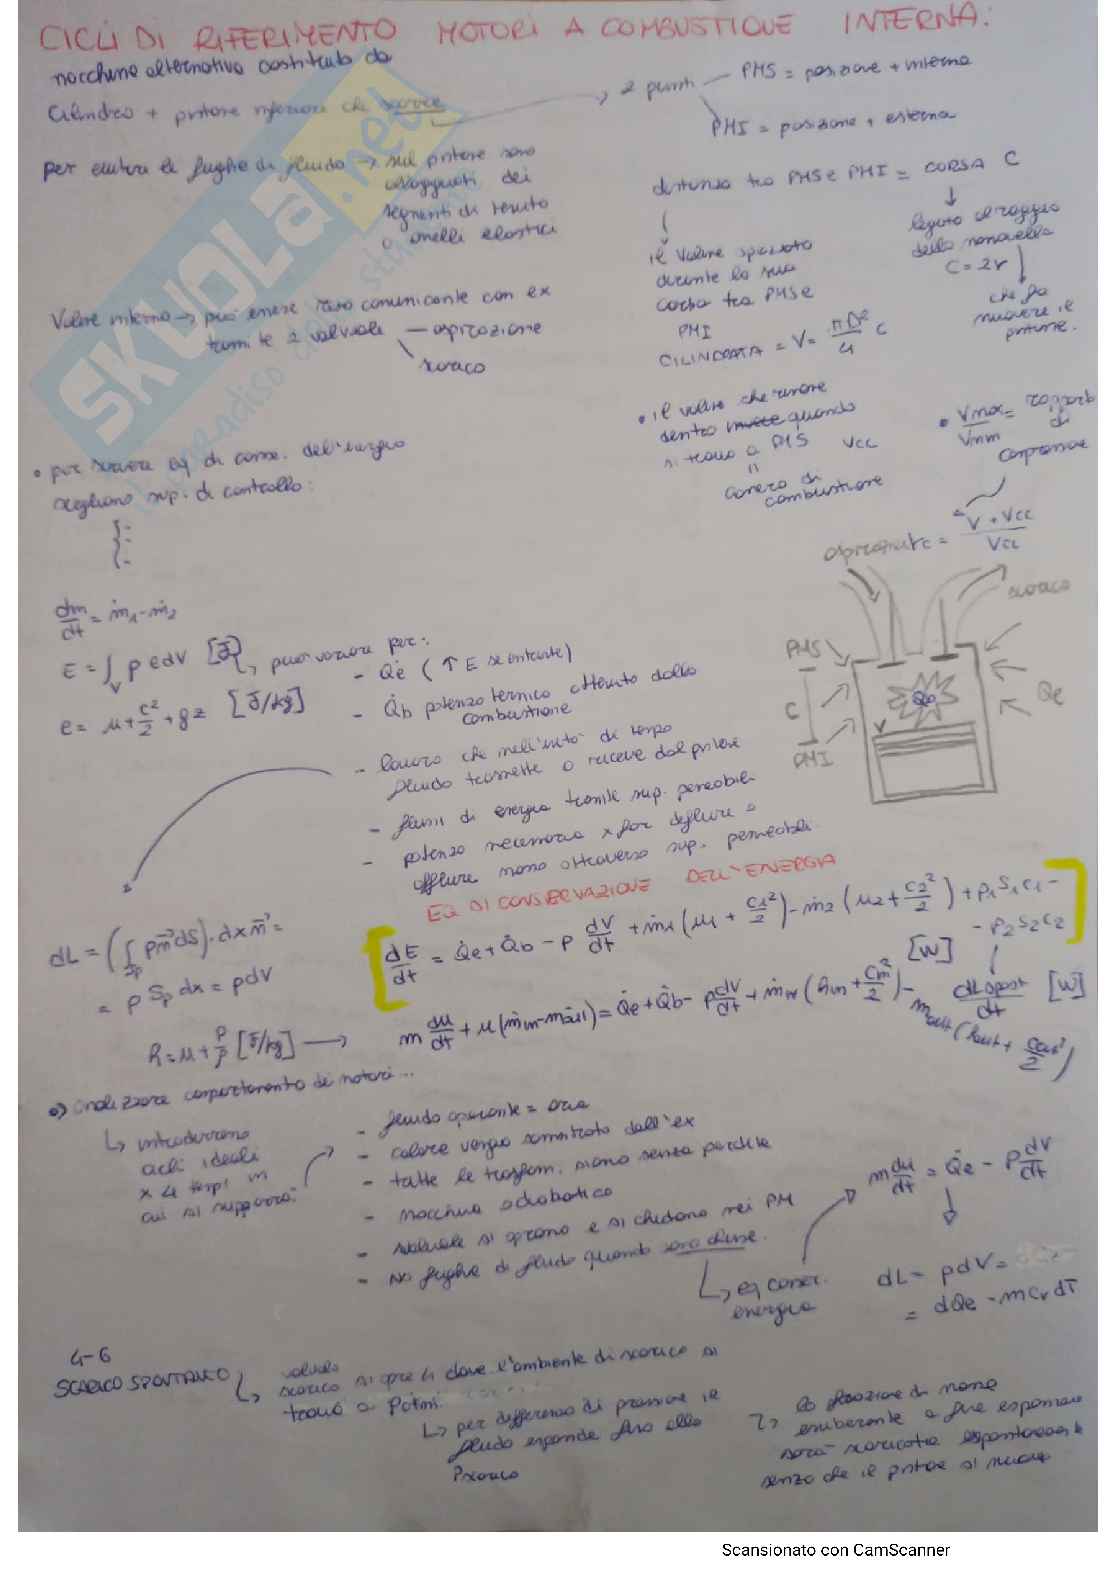 CICLI DI RIFERIMENTO MOTORI A COMBUSTIONE INTERNA:
macchina alternativa costituita da
Cilindro + pistone che scorre
2 punti
PMS = posizione + interna
PMI = posizione + esterna
per evitare le fughe di fluido → sul pistone sono
alloggiati dei
segmenti di tenuta
o anelli elastici
distanza tra PMS e PMI = CORSA C
legato al raggio
della manovella
C = 2r
che fa
muovere il
pistone.
il volume spazzato
durante la sua
corsa tra PMS e
PMI
CILINDRATA = V = πD²/4 C
Volume interno → può essere reso comunicante con ex
tramite 2 valvole — aspirazione
scarico
• il volume che rimane
dentro quando
si trova a PMS Vcc
=
camera di
combustione
• Vmax/Vmin = rapporto
di
compressione
V + Vcc / Vcc
• per scrivere eq di cons. dell'energia
scegliamo sup. di controllo:
dm/dt = ṁ1 - ṁ2
E = ∫v ρ e dV [J] può variare per:
e = u + c²/2 + gz [J/kg]
- Q̇e (↑ E se entrante)
- Q̇b potenza termica ottenuta dalla
combustione
- lavoro che nell'unità di tempo
fluido trasmette o riceve dal pistone
- flussi di energia tramite sup. permeabili
- potenza necessaria x far defluire o
affluire massa attraverso sup. permeabili.
aspirazione
scarico
PMS
C
PMI
V
Qb
Qe
EQ DI CONSERVAZIONE DELL'ENERGIA
dE/dt = Q̇e + Q̇b - p dV/dt + ṁ1 (u1 + c1²/2) - ṁ2 (u2 + c2²/2) + p1 S1 c1 -
- p2 S2 c2
[W]
dL spost/dt [W]
dL = (∫Sp p n⃗ dS) · dx n⃗ =
= p Sp dx = p dV
h = u + p/ρ [J/kg] →
m du/dt + u (ṁin - ṁout) = Q̇e + Q̇b - p dV/dt + ṁin (hin + cin²/2) -
ṁout (hout + cout²/2)
•) analizzare comportamento dei motori...
↳ introdurremo
cicli ideali
x 4 tempi in
cui si supporrà:
- fluido operante = aria
- calore venga somministrato dall'ex
- tutte le trasform. siano senza perdite
- macchina adiabatica
- valvole si aprono e si chiudono nei PM
- No fughe di fluido quando sono chiuse.
↳ eq conser.
energia
m du/dt = Q̇e - p dV/dt
dL = p dV =
= dQe - m cv dT
4-6
SCARICO SPONTANEO
↳ valvola
scarico si apre in 4 dove l'ambiente di scarico si
trova a
↳ per differenza di pressione il
fluido espande fino alla
Pscarico
↳ la frazione di massa
esuberante a fine espansione
sarà scaricata espontaneamente
senza che il pistone si muova
SKUOLA.net
Scansionato con CamScanner